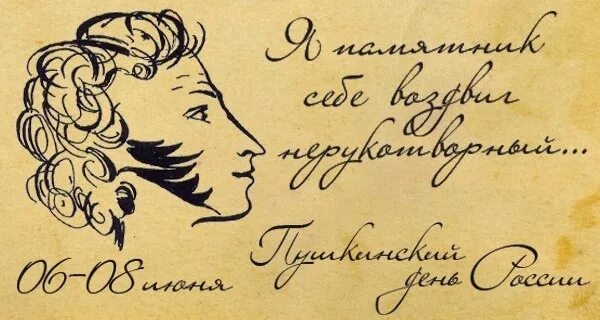 Я памятник
себе воздвиг
нерукотворный...
Пушкинский
день России
06-08 июня